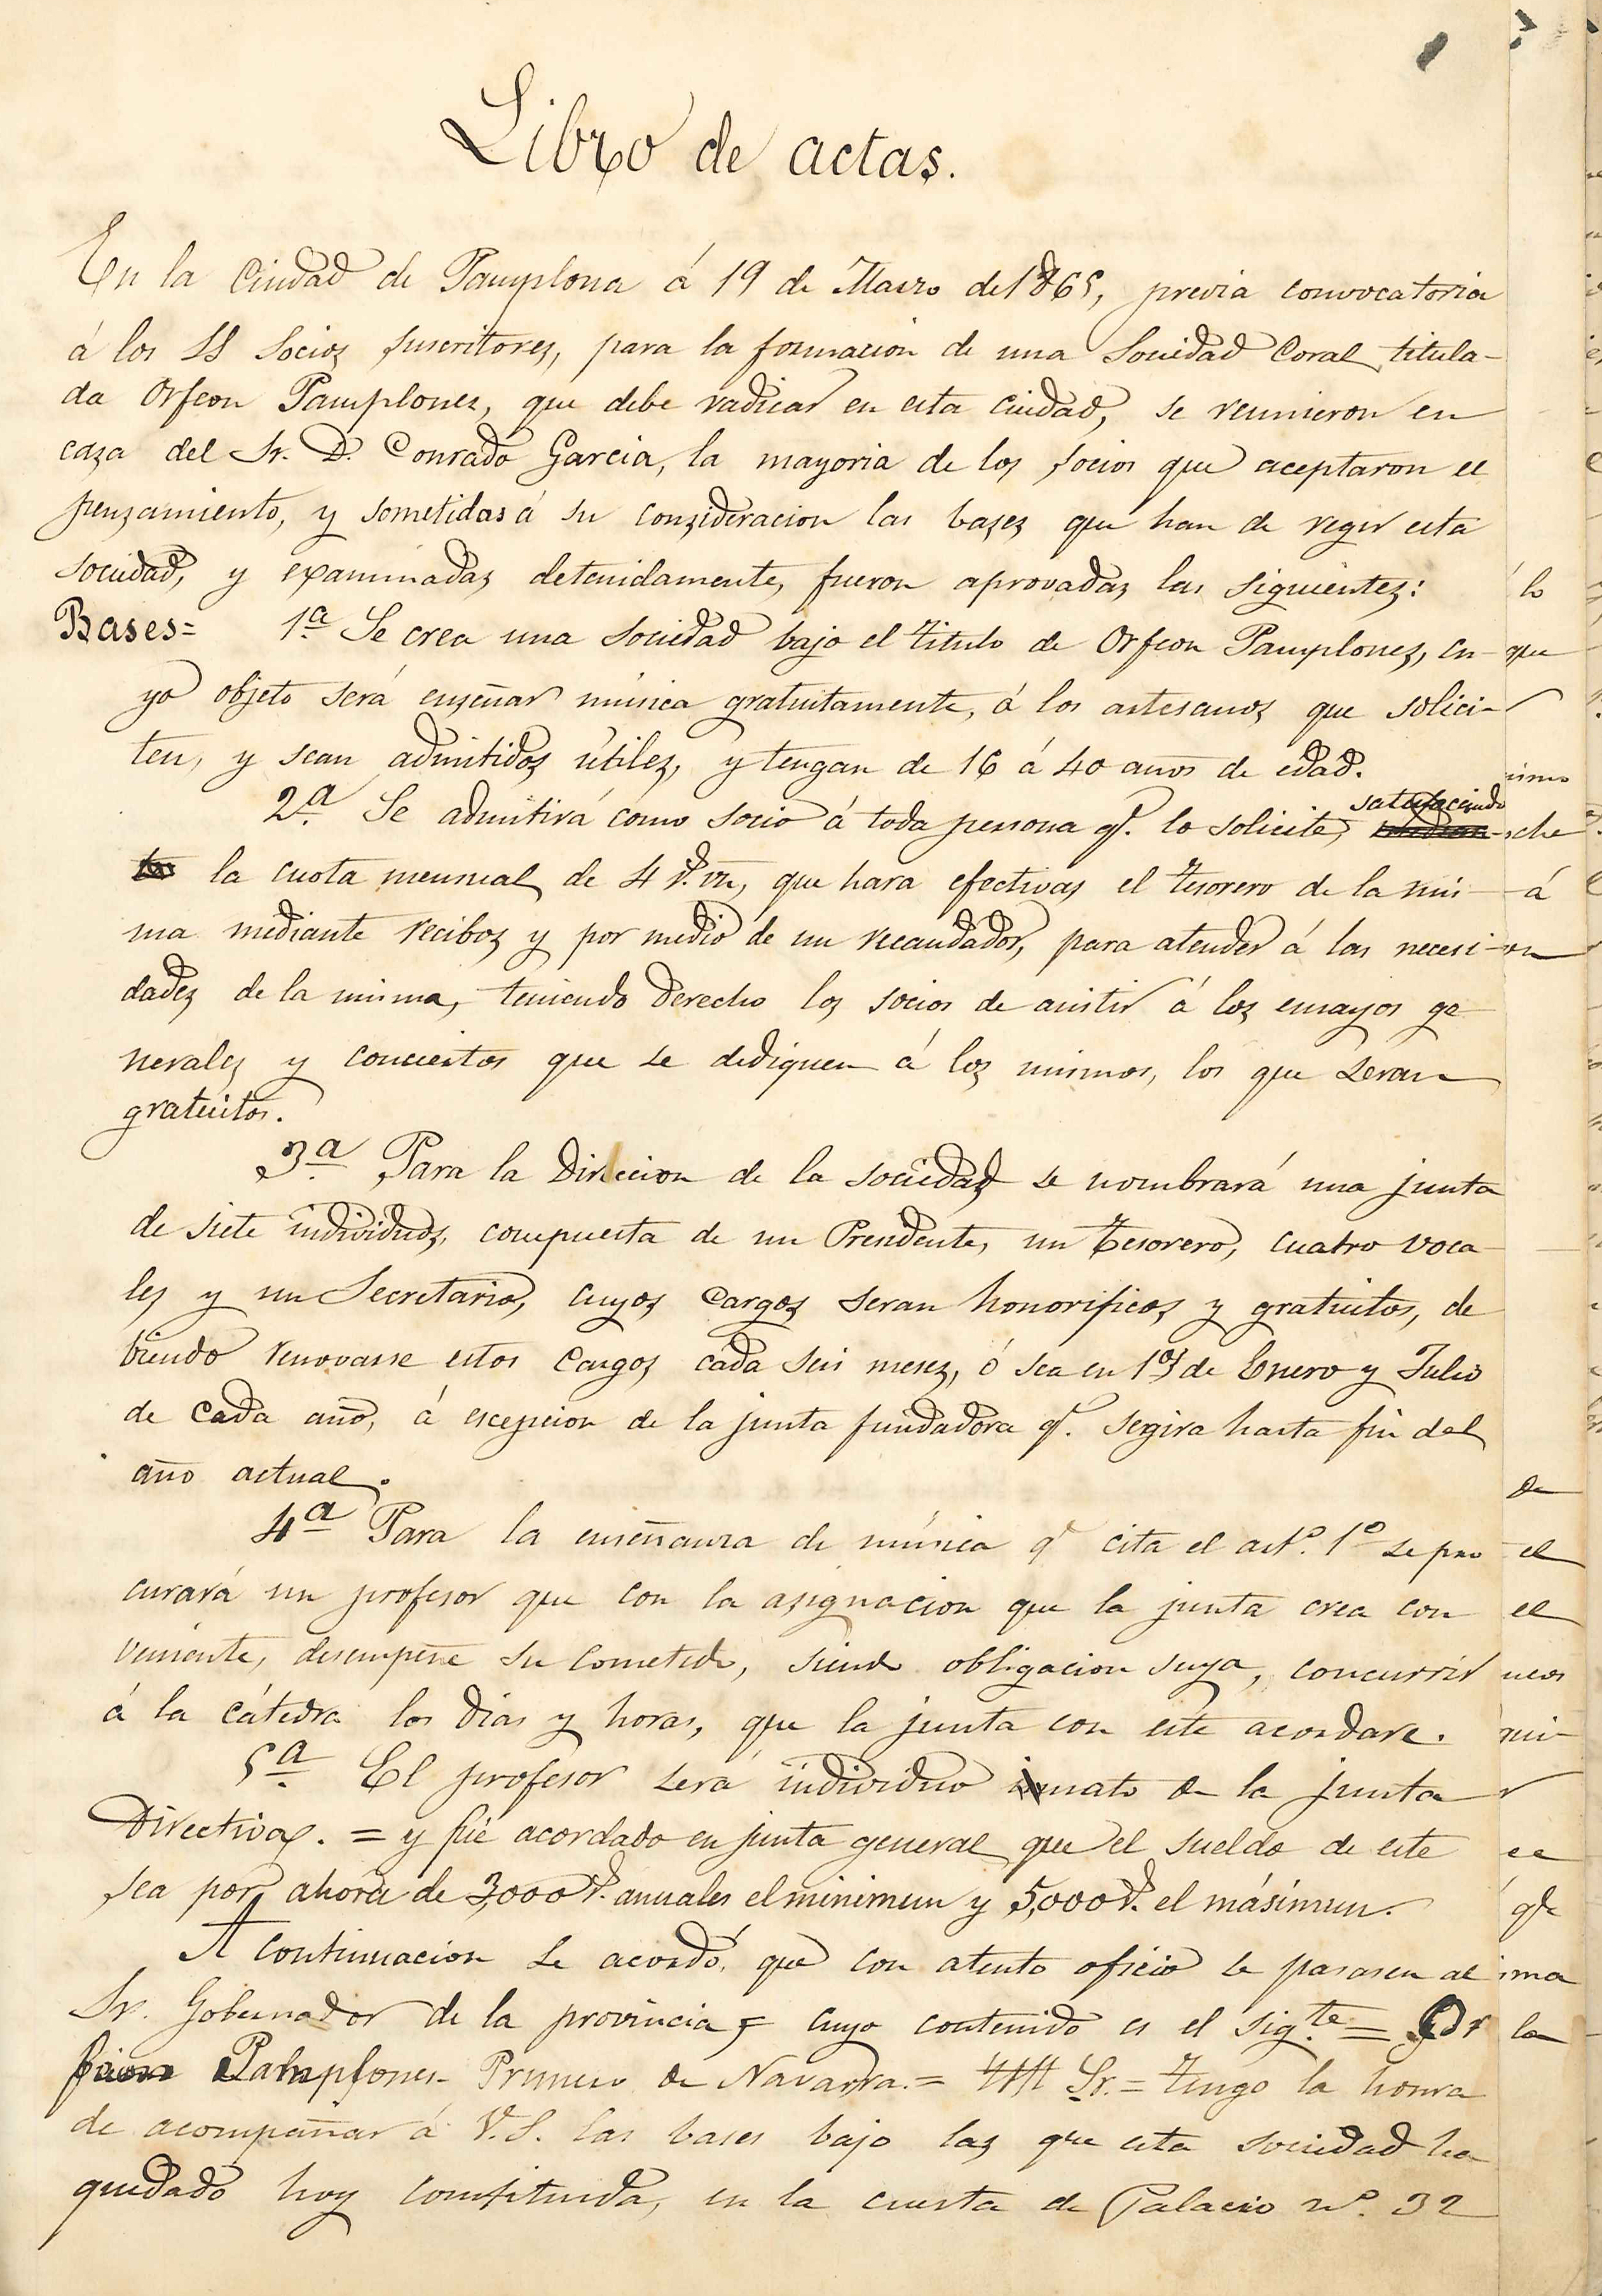 Libro de actas.
En la Ciudad de Pamplona á 19 de Marzo de 1865, previa convocatoria
á los SS Socios suscritores, para la formacion de una Sociedad Coral titula-
da Orfeon Pamplones, que debe radicar en esta ciudad, se reunieron en
casa del Sr. D. Conrado Garcia, la mayoria de los socios que aceptaron el
pensamiento, y sometidas á su consideracion las bases que han de regir esta
sociedad, y examinadas detenidamente, fueron aprovadas las siguientes:
Bases= 1ª Se crea una sociedad bajo el titulo de Orfeon Pamplones, cu-
yo objeto será enseñar música gratuitamente, á los artesanos que solici-
ten, y sean admitidos útiles, y tengan de 16 á 40 años de edad.
2ª Se admitirá como socio á toda persona q.e lo solicite, satisfaciendo
la cuota mensual de 4 r.s vn, que hara efectivas el tesorero de la mis-
ma mediante recibos y por medio de un recaudador, para atender á las necesi-
dades de la misma, teniendo derecho los socios de asistir á los ensayos ge-
nerales y conciertos que se dediquen á los mismos, los que seran
gratuitos.
3ª Para la Direccion de la sociedad se nombrará una junta
de siete individuos, compuesta de un Presidente, un Tesorero, cuatro voca-
les y un Secretario, cuyos cargos seran honorificos y gratuitos, de
biendo renovarse estos cargos cada seis meses, ó sea en 1os de Enero y Julio
de cada año, á escepcion de la junta fundadora q.e segira hasta fin del
año actual.
4ª Para la enseñanza de música q.e cita el art.o 1º se pro
curará un profesor que con la asignacion que la junta crea con
veniente, desempeñe su cometido, siendo obligacion suya, concurrir
á la cátedra los dias y horas, que la junta con este acordare.
5ª El profesor será individuo nato de la junta
Directiva. = y fué acordado en junta general que el sueldo de este
sea por ahora de 3,000 r.s anuales el minimun y 5,000 r.s el másimun.
A continuacion se acordó, que con atento oficio se pasasen al
Sr. Gobernador de la provincia, cuyo contenido es el sig.te = Or
feon Pamplones Primero de Navarra. = Sr. = Tengo la honra
de acompañar á V.S. las bases bajo las que esta sociedad ha
quedado hoy constituida, en la cuesta de Palacio nº. 32